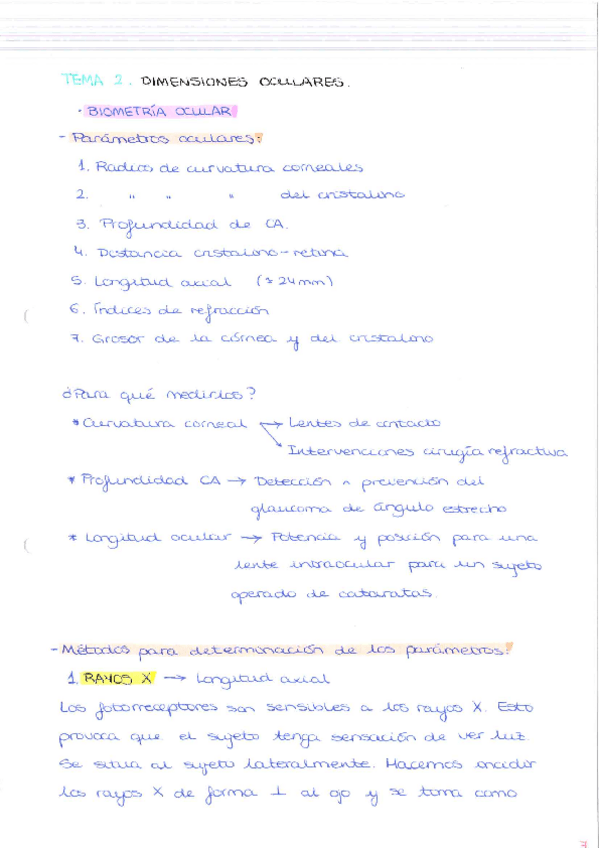 TEMA 2. DIMENSIONES OCULARES.
· BIOMETRÍA OCULAR
- Parámetros oculares:
1. Radios de curvatura corneales
2. " " " del cristalino
3. Profundidad de CA.
4. Distancia cristalino-retina
5. Longitud axial (≈24mm)
6. Índices de refracción
7. Grosor de la córnea y del cristalino
¿Para qué medirlos?
* Curvatura corneal → Lentes de contacto
↘ Intervenciones cirugía refractiva
* Profundidad CA → Detección n prevención del
glaucoma de ángulo estrecho
* Longitud ocular → Potencia y posición para una
lente intraocular para un sujeto
operado de cataratas.
- Métodos para determinación de los parámetros:
1. RAYOS X → Longitud axial
Los fotorreceptores son sensibles a los rayos X. Esto
provoca que el sujeto tenga sensación de ver luz.
Se situa al sujeto lateralmente. Hacemos incidir
los rayos X de forma ⊥ al ojo y se toma como